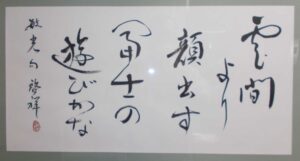 雲間
より
顔出す
冨士の
遊びかな
敏光句 啓祥